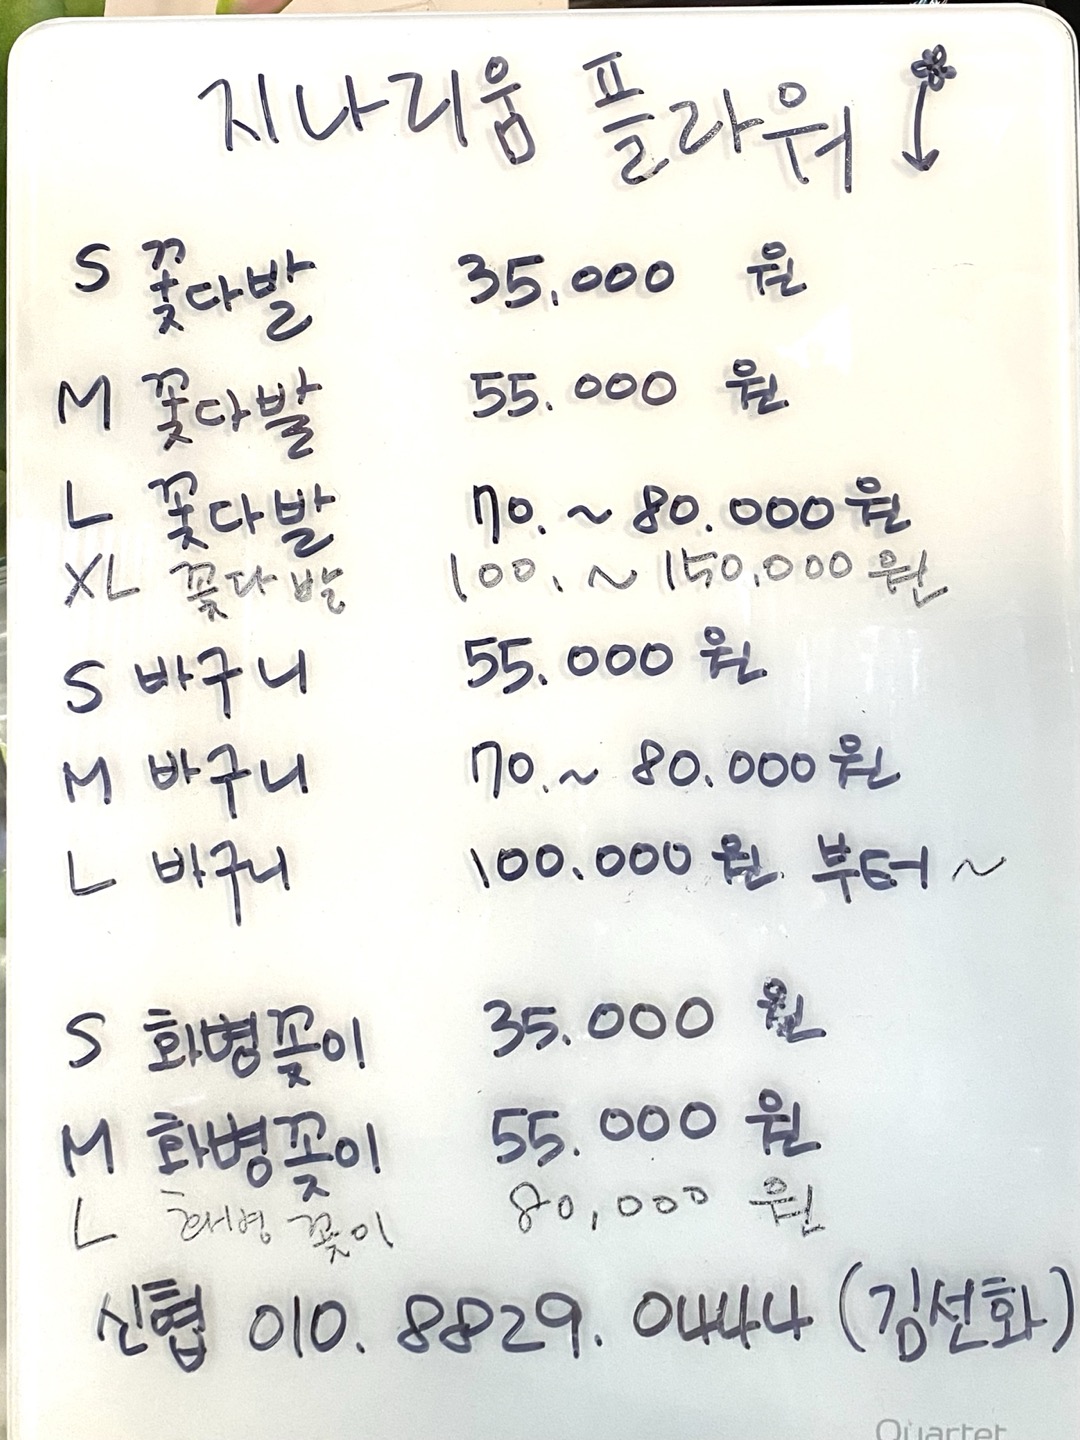 지나리움 플라워
S 꽃다발 35.000 원
M 꽃다발 55.000 원
L 꽃다발 70.~80.000원
XL 꽃다발 100.~150,000원
S 바구니 55.000 원
M 바구니 70.~ 80.000원
L 바구니 100.000원 부터~
S 화병꽂이 35.000 원
M 화병꽂이 55.000 원
L 화병꽂이 80,000 원
신협 010. 8829. 0444 (김선화)
Quartet